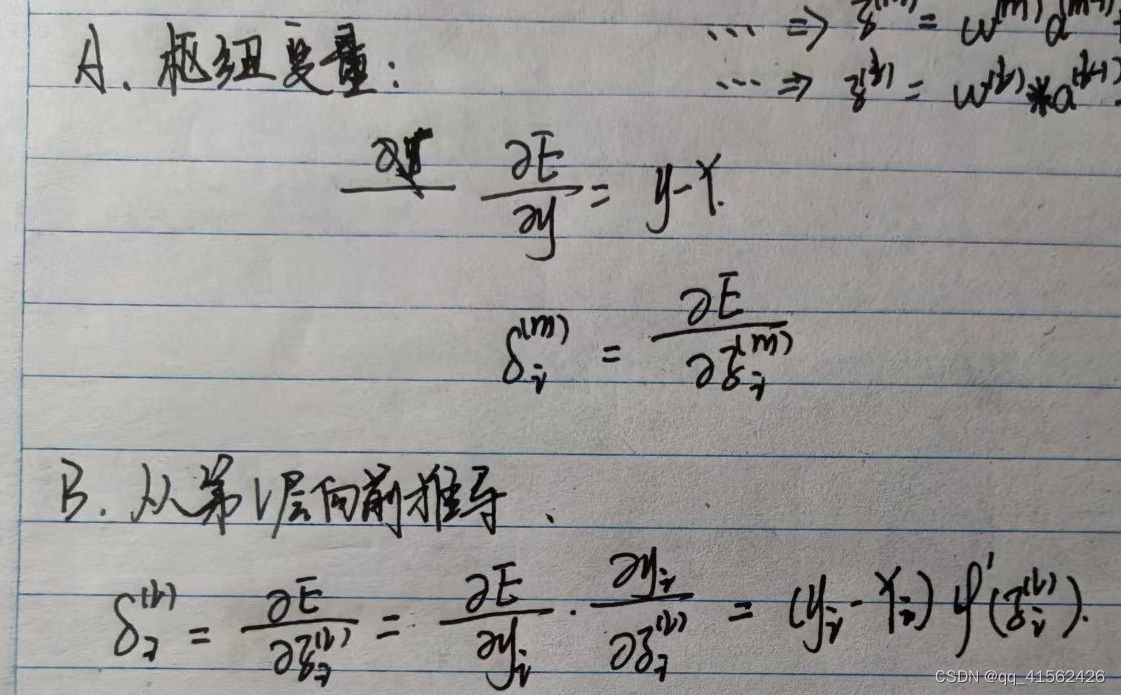 … ⇒ z^(m) = w^(m) a^(m-1)
… ⇒ z^(l) = w^(l) * a^(l-1)
A. 枢纽变量:
∂E/∂y = y-Y.
δ_i^(m) = ∂E/∂z_i^(m)
B. 从第l层向前推导、
δ_i^(l) = ∂E/∂z_i^(l) = ∂E/∂y_i · ∂y_i/∂z_i^(l) = (y_i - Y_i) φ'(z_i^(l)).
CSDN @qq_41562426